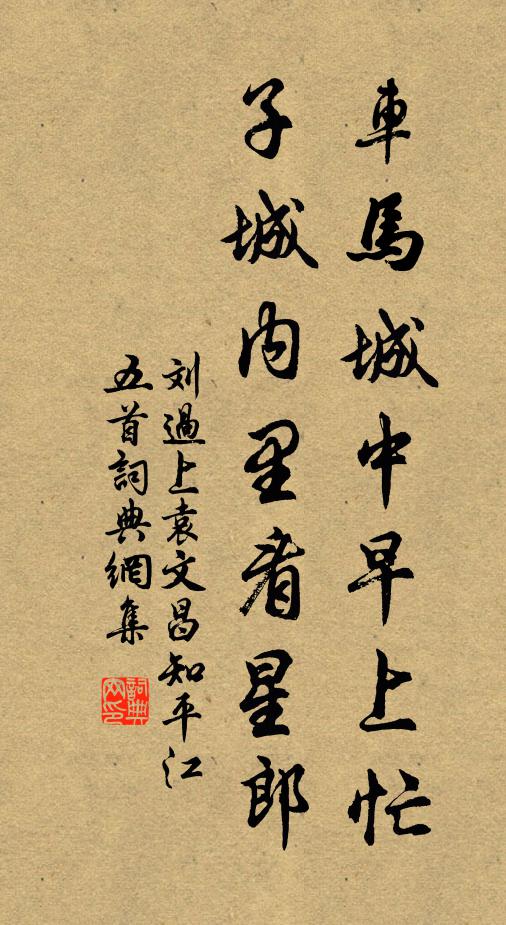 車馬城中早上忙
子城内里看星郎
刘過上袁文昌知平江
五首詞典網集
詞典
网印